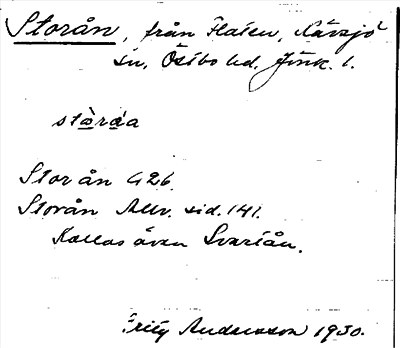 Storån, från Flaten, Kävsjö
sn, Östbo hd. Jönk. l.
Storån G26.
Storån Allv. sid. 141.
Kallas även Svartån.
Fritz Andersson 1930.